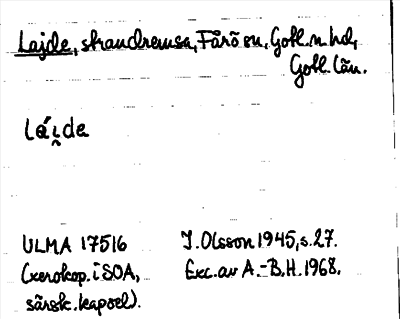 Lajde, strandremsa, Fårö sn, Gotl. n. hd,
Gotl. län.
lái̯de
ULMA 17516
(xerokop. i SOA,
särsk. kapsel).
I. Olsson 1945, s. 27.
Exc. av A.-B. H. 1968.